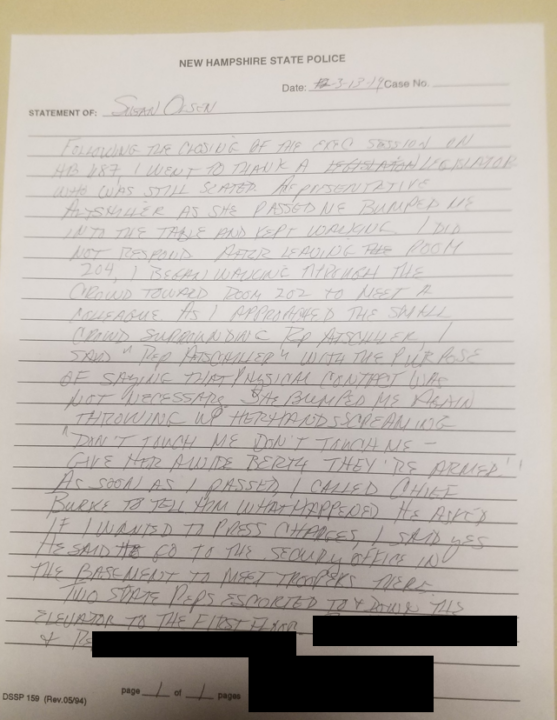 NEW HAMPSHIRE STATE POLICE
Date: 3-13-19 Case No.
STATEMENT OF: SUSAN OLSEN
FOLLOWING THE CLOSING OF THE EXEC SESSION ON
HB 687 I WENT TO THANK A LEGISLATOR
WHO WAS STILL SEATED REPRESENTATIVE
ALTSCHILLER AS SHE PASSED ME BUMPED ME
INTO THE TABLE AND KEPT WALKING I DID
NOT RESPOND AFTER LEAVING THE ROOM
204, I BEGAN WALKING THROUGH THE
CROWD TOWARD ROOM 202 TO MEET A
COLLEAGUE AS I APPROACHED THE SMALL
CROWD SURROUNDING REP ALTSCHILLER, I
SAID "REP ALTSCHILLER" WITH THE PURPOSE
OF SAYING THAT PHYSICAL CONTACT WAS
NOT NECESSARY. SHE BUMPED ME AGAIN
THROWING UP HER HANDS SCREAMING
"DON'T TOUCH ME DON'T TOUCH ME -
GIVE HER A WIDE BERTH THEY'RE ARMED"!
AS SOON AS I PASSED, I CALLED CHIEF
BURKE TO TELL HIM WHAT HAPPENED HE ASKED
IF I WANTED TO PRESS CHARGES I SAID YES
HE SAID GO TO THE SECURITY OFFICE IN
THE BASEMENT TO MEET TROOPERS THERE.
TWO STATE REPS ESCORTED TO & DOWN THE
ELEVATOR TO THE FIRST FLOOR
&
DSSP 159 (Rev.05/94) page 1 of 1 pages